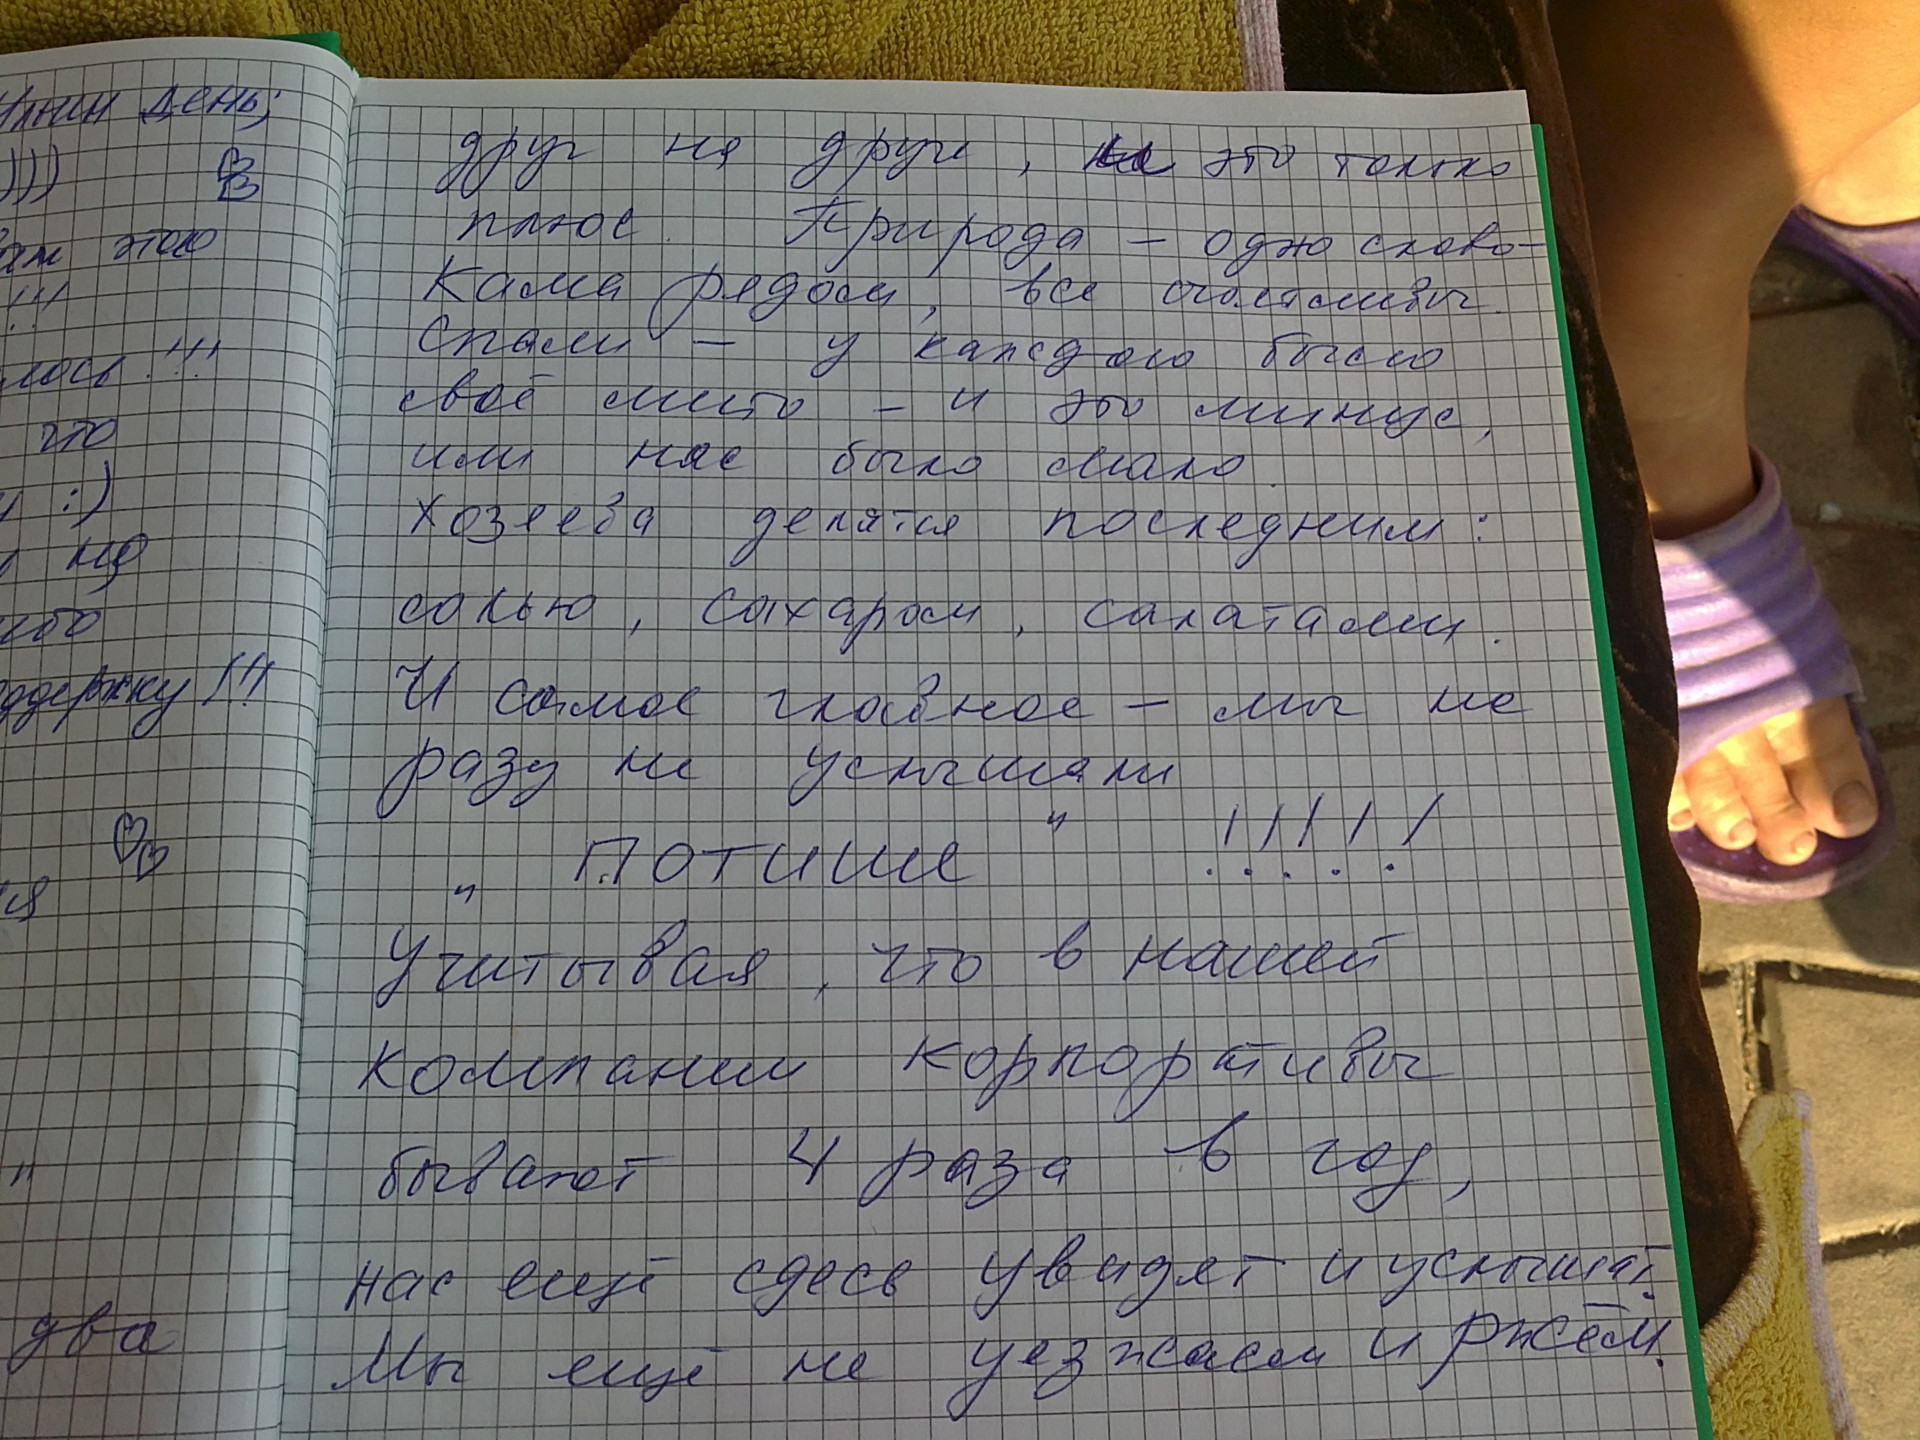 день;
)))
этого
!!!
лось!!!
что
:)
на
ддержку!!!
"
два
друг на друга, это только
плюс. Природа - одно слово -
Кама рядом, все счастливы.
Спали - у каждого было
своё место - и это минус,
или нас было мало.
Хозяева делятся последним:
солью, сахаром, салатами.
И самое главное - мы не
разу не услышали
„ Потише " !!!!!
Учитывая, что в нашей
компании корпоративы
бывают 4 раза в год,
нас ещё сдесь увидят и услышат.
Мы ещё не уезжаем и ржём.